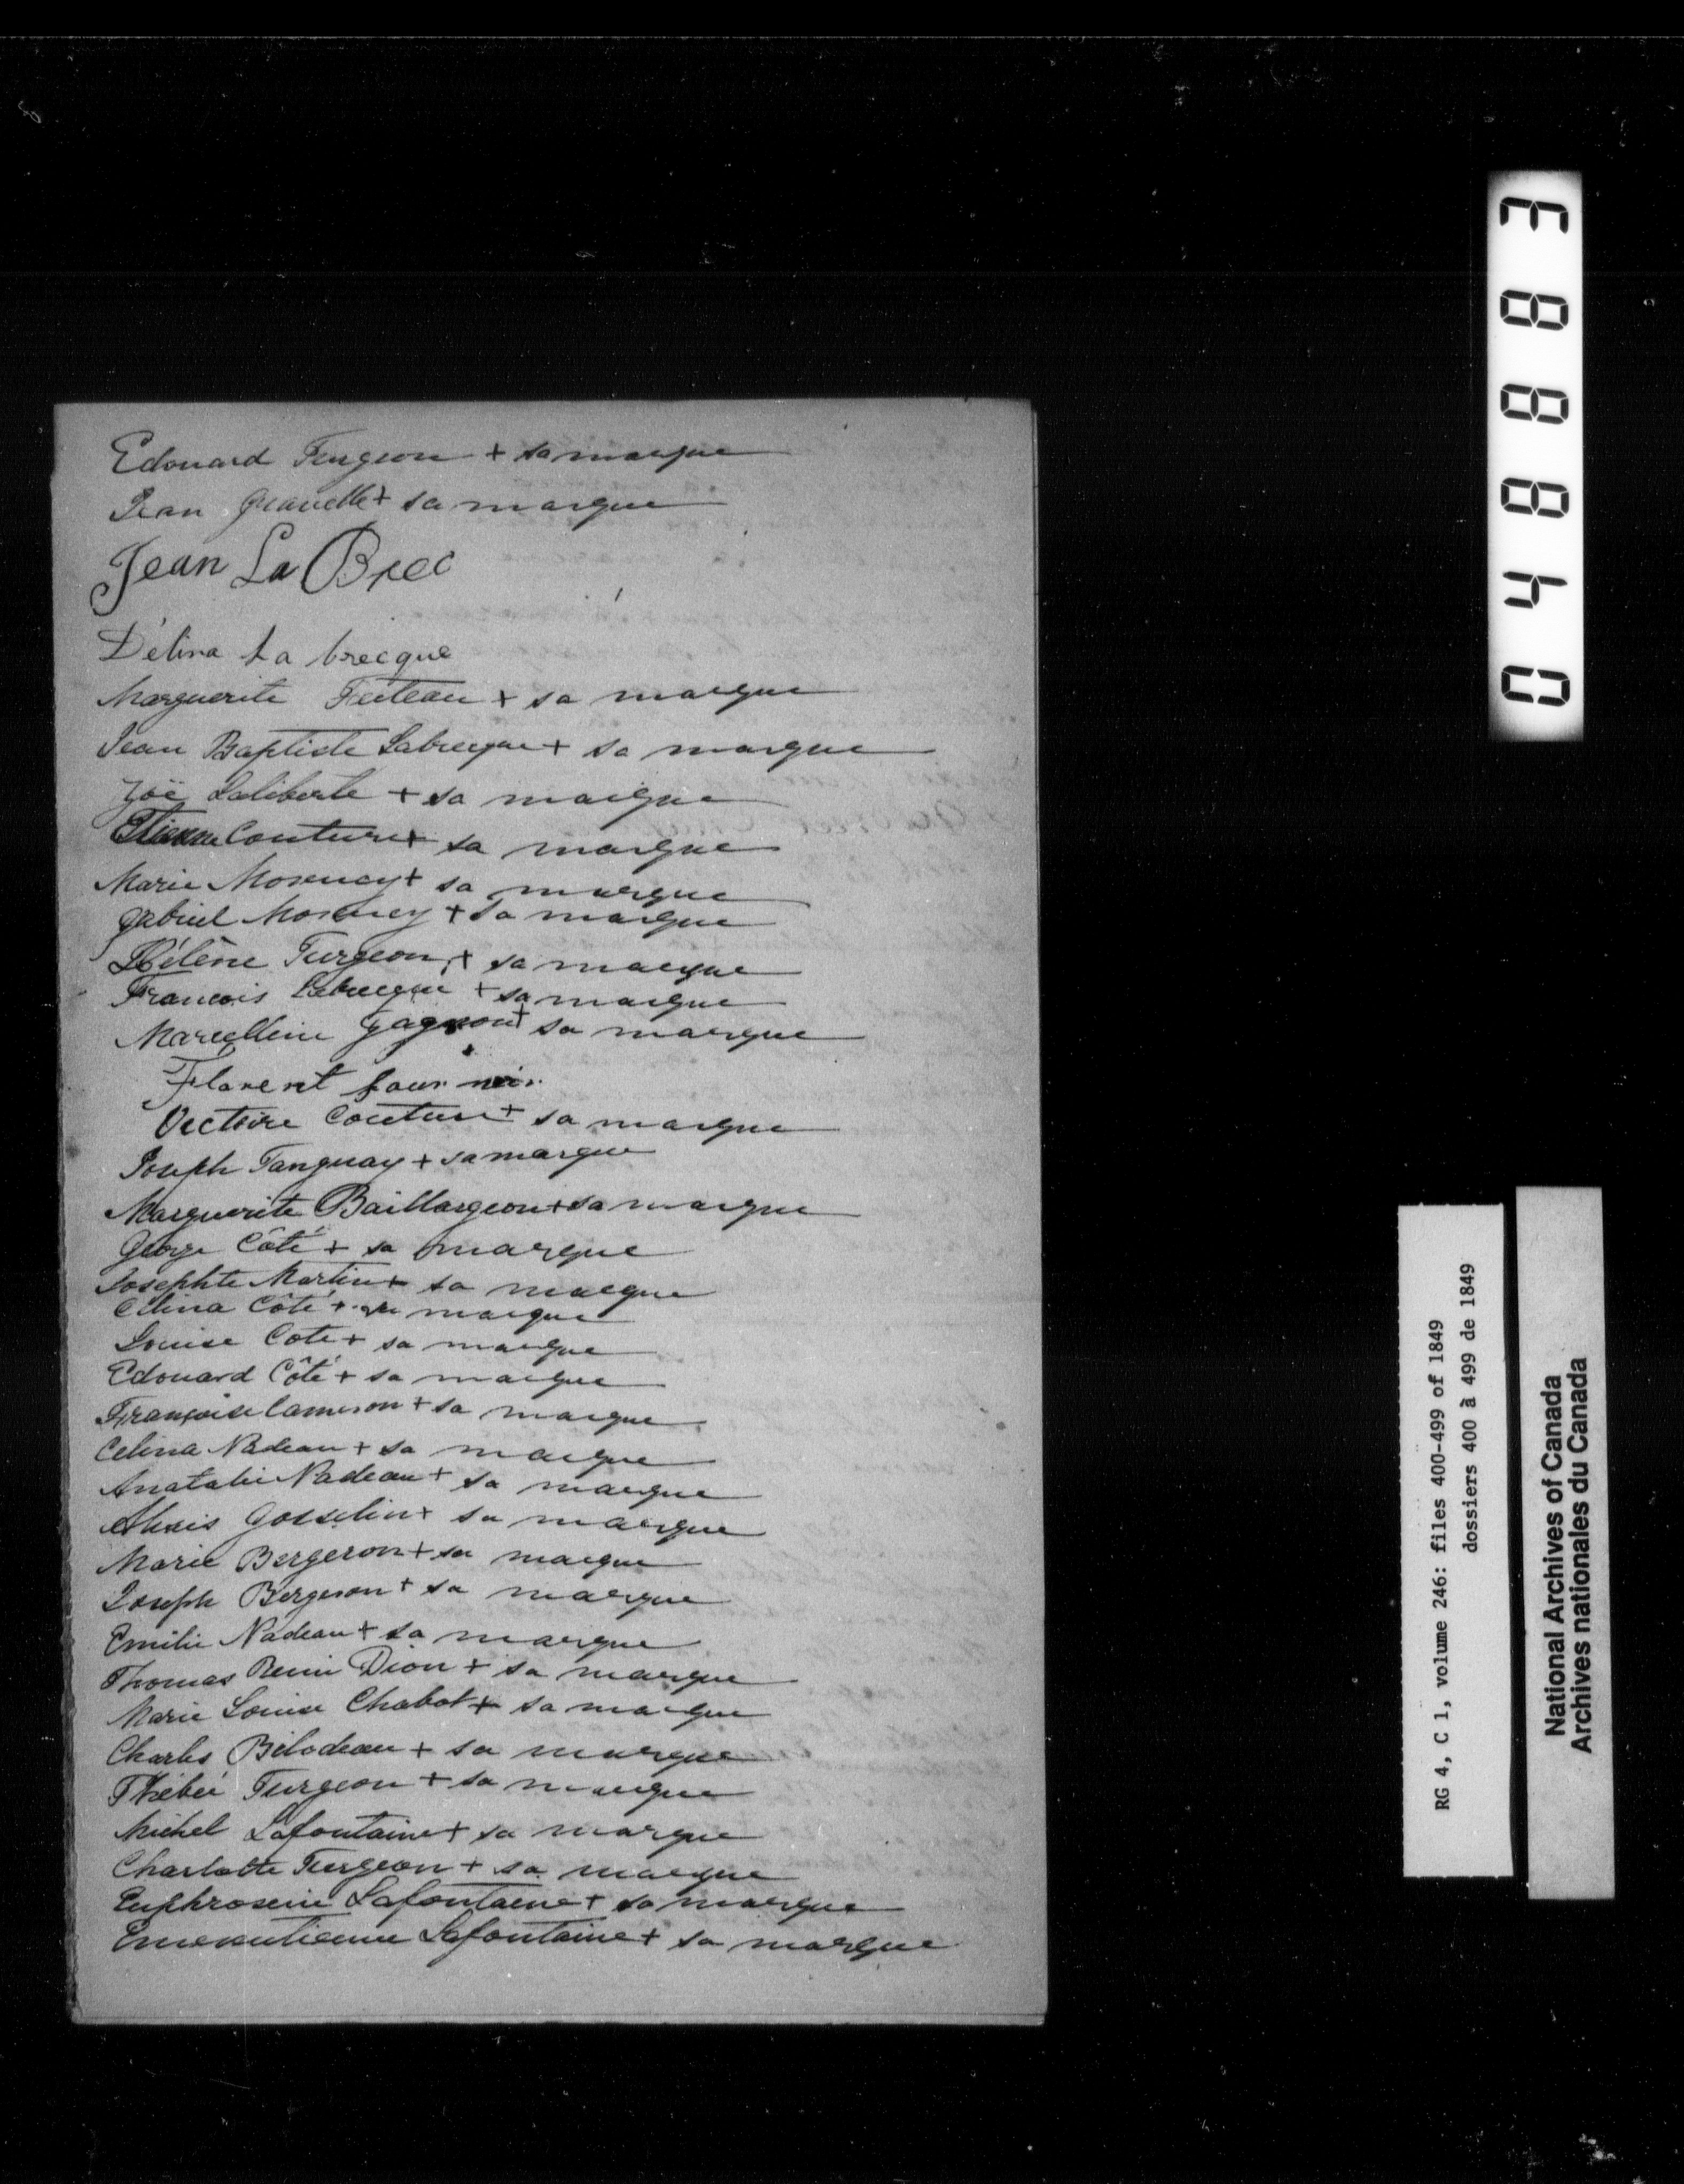 Edouard Turgeon + sa marque
Jean + sa marque
Jean La Brec
Délina La brecque
Marguerite Futeau + sa marque
Jean Baptiste Labrecque + sa marque
Zoë Laliberte + sa marque
Etienne Couture + sa marque
Marie Morency + sa marque
Gabriel Morency + sa marque
Hélène Turgeon + sa marque
Francois Labrecque + sa marque
Marcelline Gagnon + sa marque
Florent four nier
Victoire Couture + sa marque
Joseph Tanguay + sa marque
Marguerite Baillargeon + sa marque
George Côté + sa marque
Josephte Martin + sa marque
Celina Côté + sa marque
Louise Coté + sa marque
Edouard Côté + sa marque
Françoise Cameron + sa marque
Celina Nadeau + sa marque
Anatalie Nadeau + sa marque
Alexis Gosselin + sa marque
Marie Bergeron + sa marque
Joseph Bergeron + sa marque
Emilie Nadeau + sa marque
Thomas Remi Dion + sa marque
Marie Louise Chabot + sa marque
Charles Bilodeau + sa marque
Phébée Turgeon + sa marque
Michel Lafontaine + sa marque
Charlotte Turgeon + sa marque
Euphrosine Lafontaine + sa marque
Lafontaine + sa marque
048883
RG 4, C 1, volume 246: files 400-499 of 1849
dossiers 400 à 499 de 1849
National Archives of Canada
Archives nationales du Canada